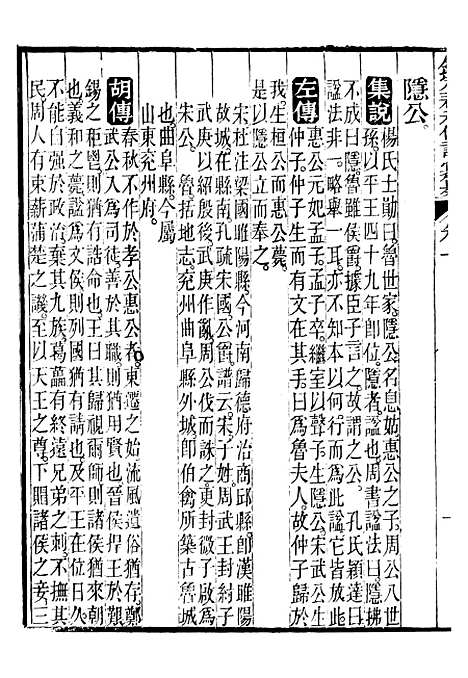 隱公。
集說 楊氏士勛曰。魯世家。隱公名息姑。惠公之子。周公八世
孫。以平王四十九年即位。隱者。諡也。周書諡法曰。隱拂
不成曰隱。魯雖侯爵。據臣子言之。故謂之公。 孔氏穎達曰。
諡法非一。略舉一耳。亦不知本以何行而為此諡。它皆放此。
左傳 惠公元妃孟子。孟子卒。繼室以聲子。生隱公。宋武公生
仲子。仲子生而有文在其手。曰為魯夫人。故仲子歸於
我。生桓公而惠公薨。
是以隱公立而奉之。
宋杜注梁國睢陽縣。今河南歸德府治商邱縣。即漢睢陽
故城。在縣南。孔疏宋國。公爵。譜云。宋子姓。周武王封紂子
武庚以紹殷後。武庚作亂。周公伐而誅之。更封微子啟為
宋公。 魯括地志。兗州曲阜縣外城。即伯禽所築古魯城
也。曲阜縣。今屬
山東兗州府。
胡傳 春秋不作於孝公惠公者。東遷之始。流風遺俗猶有存。鄭
武公入為司徒。善於其職。則猶用賢也。晉侯捍王於艱
錫之秬鬯。則猶有誥命也。王曰其歸視爾師。則諸侯猶來朝
也。義和之薨。諡為文侯。則列國猶有請也。及平王在位日久。
不能自強於政治。棄其九族。葛藟有終遠兄弟之刺。不撫其
民。周人有束薪蒲楚之譏。至以天王之尊。下賵諸侯之妾。三